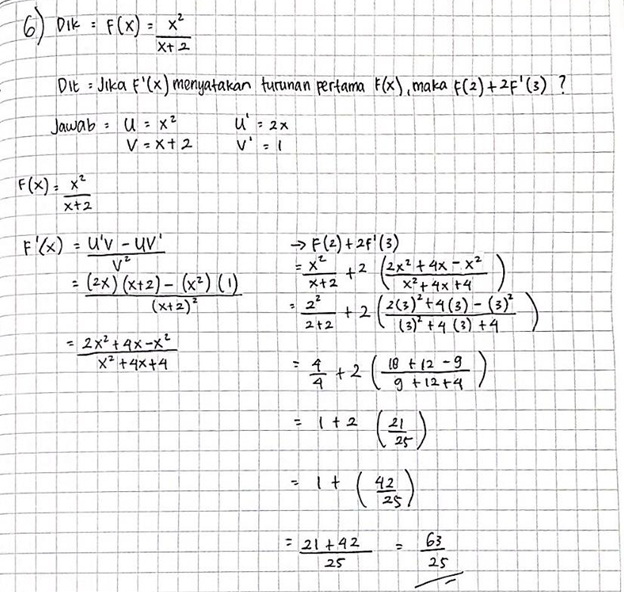 6) Dik = F(x) = x²/(x+2)
Dit = Jika F'(x) menyatakan turunan pertama F(x), maka F(2)+2F'(3) ?
Jawab = U = x² U' = 2x
V = x+2 V' = 1
F(x) = x²/(x+2)
F'(x) = (U'V - UV')/V²
= ((2x)(x+2) - (x²)(1))/(x+2)²
= (2x²+4x-x²)/(x²+4x+4)
→ F(2)+2F'(3)
= x²/(x+2) + 2 ((2x²+4x-x²)/(x²+4x+4))
= 2²/(2+2) + 2 ((2(3)²+4(3)-(3)²)/((3)²+4(3)+4))
= 4/4 + 2 ((18+12-9)/(9+12+4))
= 1+2 (21/25)
= 1+ (42/25)
= (21+42)/25 = 63/25